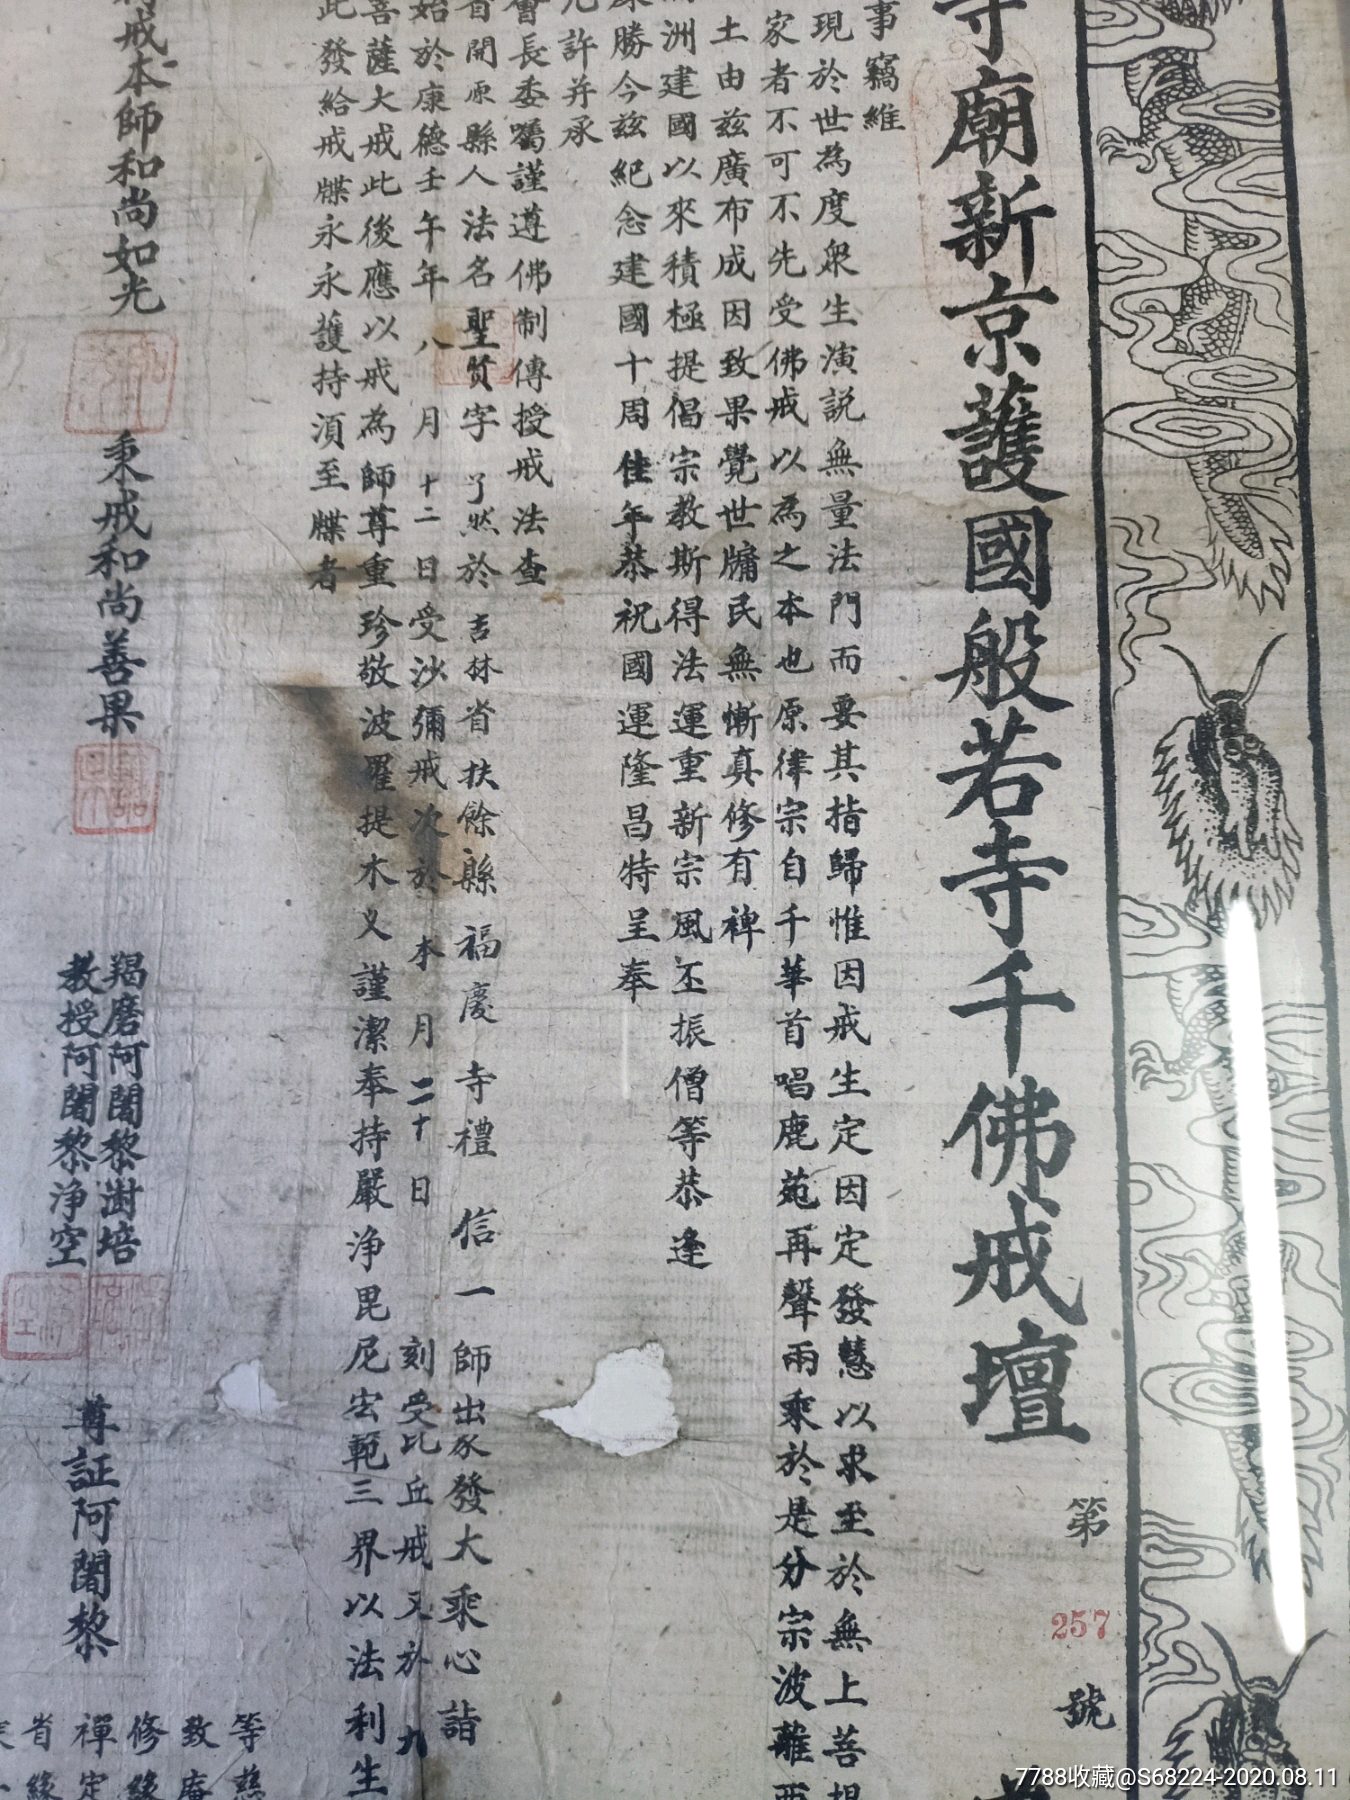 寺廟新京護國般若寺千佛戒壇
第 257 號
事竊維
現於世為度衆生演説無量法門而要其指歸惟因戒生定因定發慧以求至於無上菩提
家者不可不先受佛戒以為之本也原律宗自千華首唱鹿苑再聲雨乘於是分宗波離西
土由兹廣布成因致果覺世牖民無慚真修有裨
洲建國以來積極提倡宗教斯得法運重新宗風丕振僧等恭逢
勝今兹紀念建國十周佳年恭祝國運隆昌特呈奉
允許并承
會長委囑謹遵佛制傳授戒法查
省開原縣人法名聖賢字了然於吉林省扶餘縣福慶寺禮信一師出家發大乘心詣
始於康德壬午年八月十二日受沙彌戒次於本月二十日刻受比丘戒又於九
菩薩大戒此後應以戒為師尊重珍敬波羅提木义謹潔奉持嚴浄毘尼宏範三界以法利生
此發給戒牒永永護持須至牒者
戒本師和尚如光
秉戒和尚善果
羯磨阿闍黎澍培
教授阿闍黎浄空
尊証阿闍黎
等慈
致庵
修緣
禪定
省緣
7788收藏@S68224-2020.08.11